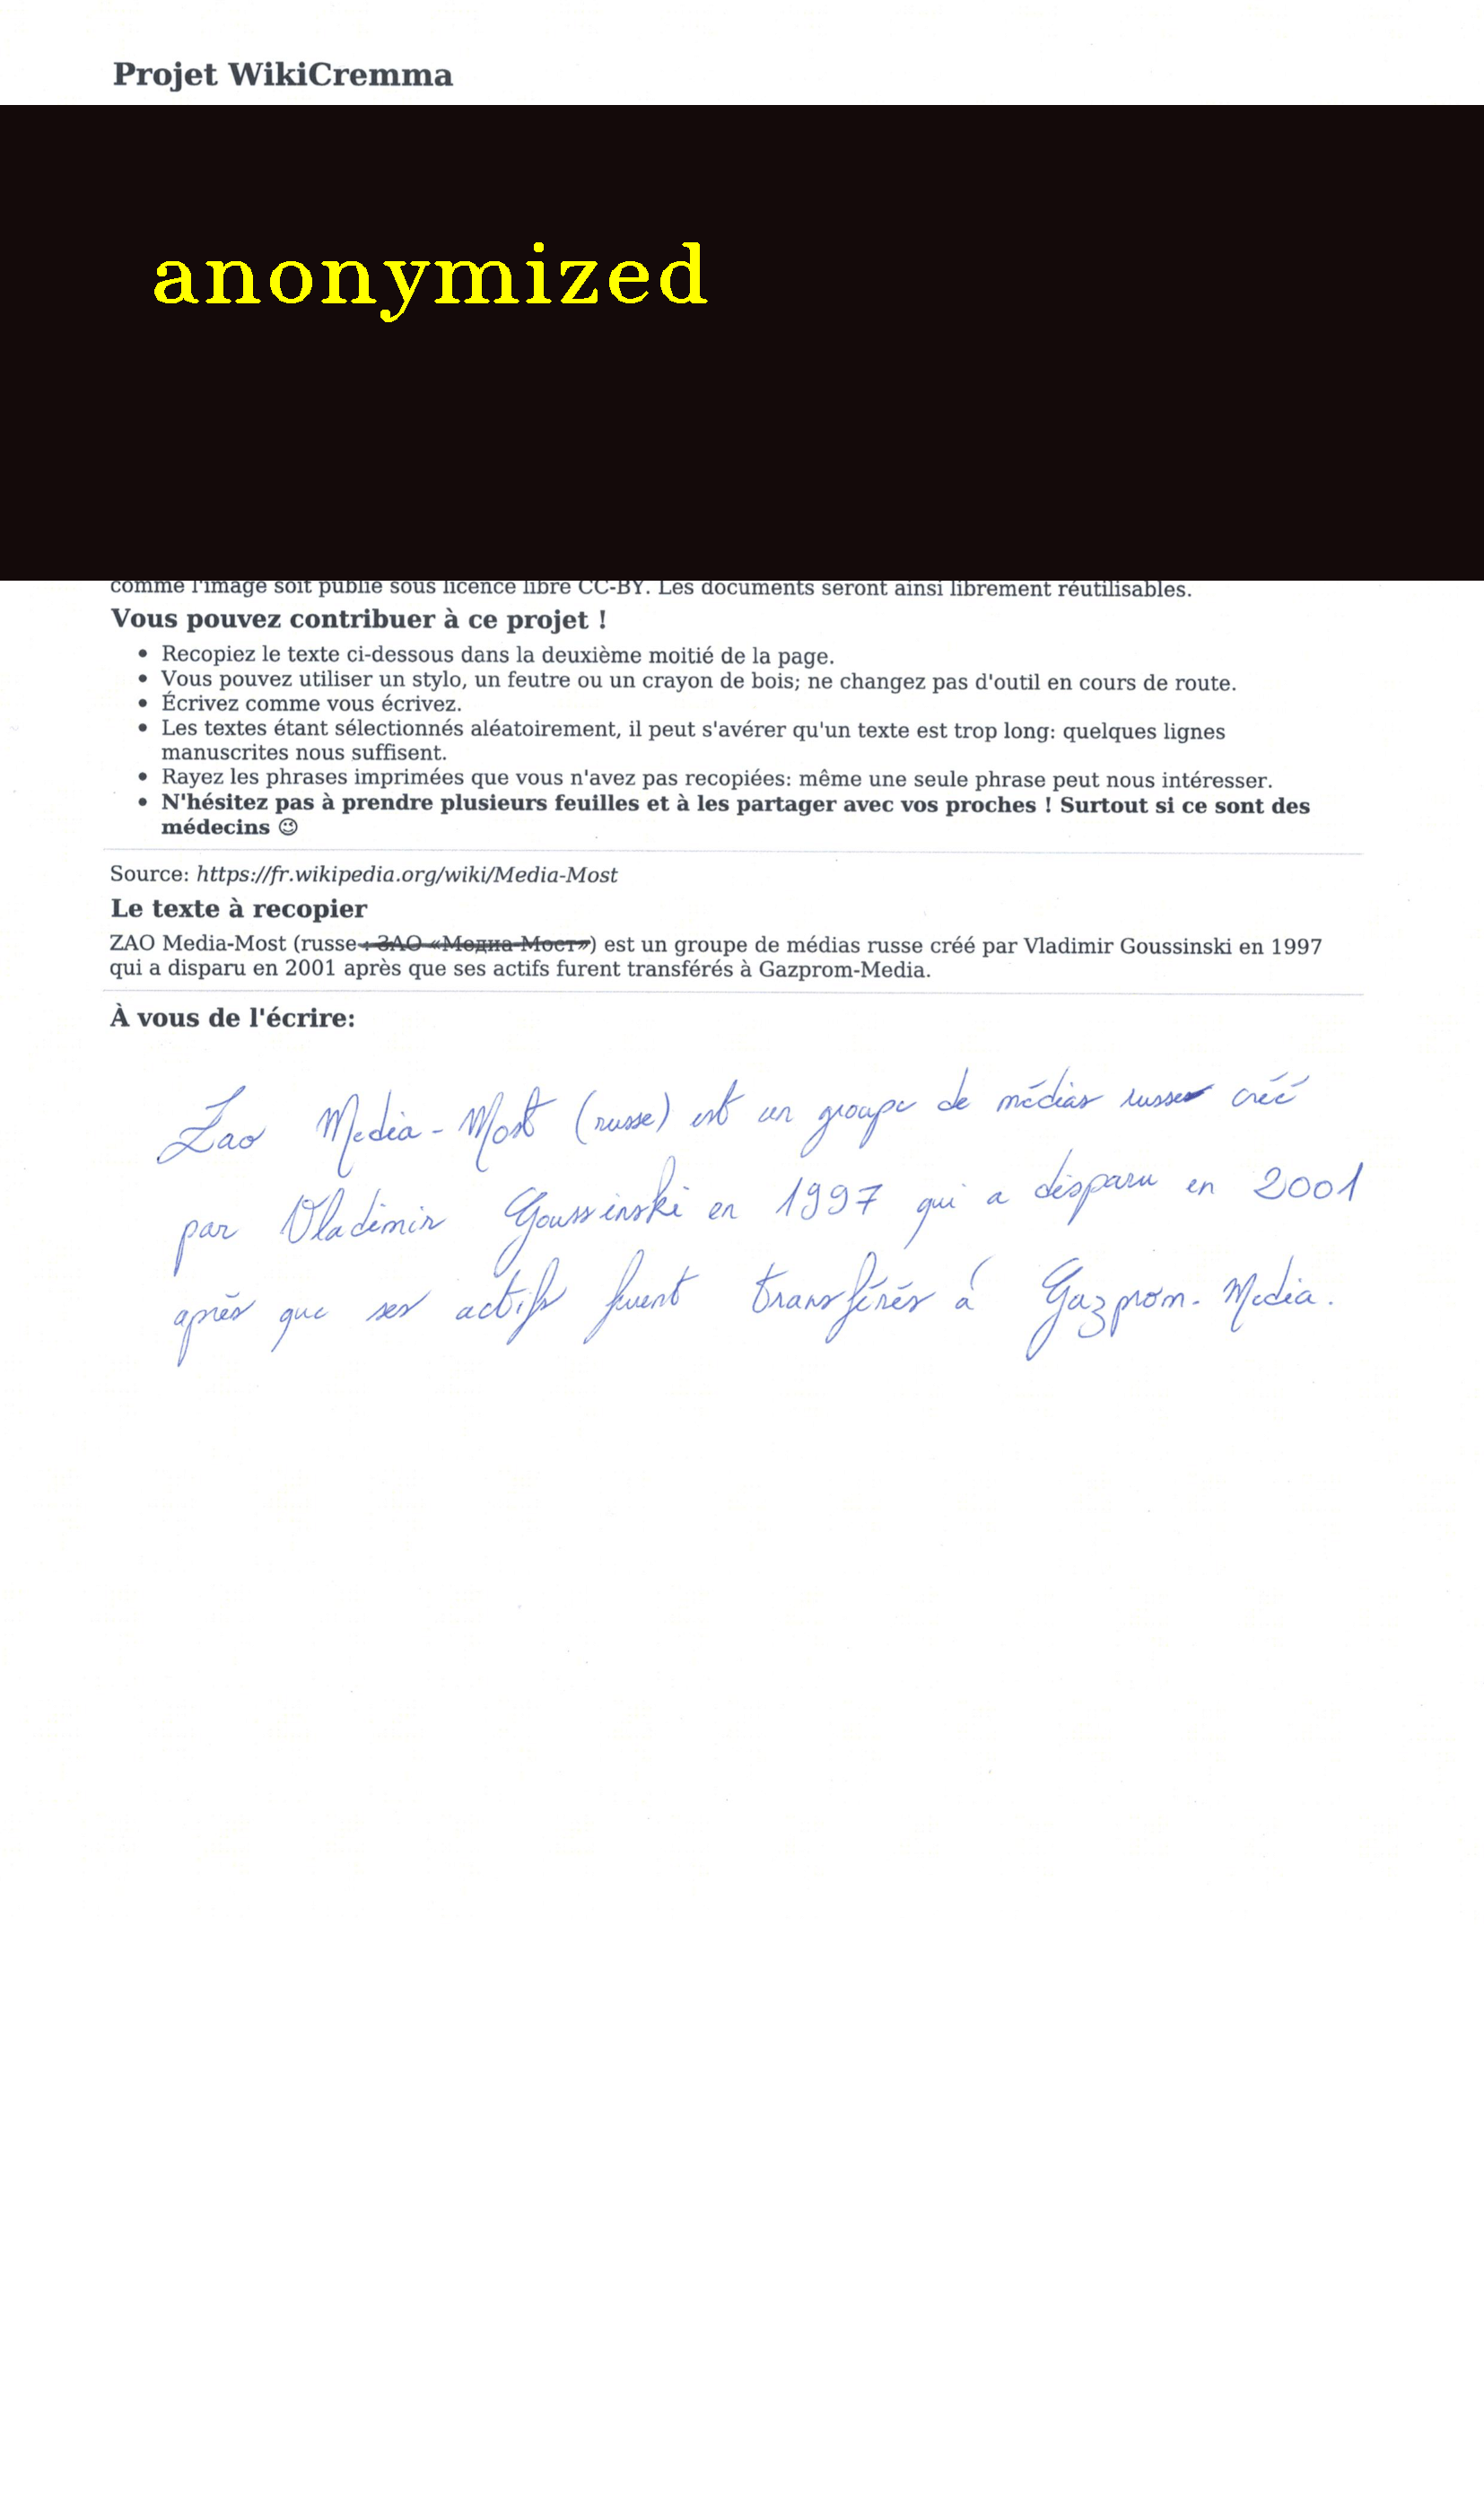 Projet WikiCremma
anonymized
comme l'image soit publié sous licence libre CC-BY. Les documents seront ainsi librement réutilisables.
Vous pouvez contribuer à ce projet !
• Recopiez le texte ci-dessous dans la deuxième moitié de la page.
• Vous pouvez utiliser un stylo, un feutre ou un crayon de bois; ne changez pas d'outil en cours de route.
• Écrivez comme vous écrivez.
• Les textes étant sélectionnés aléatoirement, il peut s'avérer qu'un texte est trop long: quelques lignes
manuscrites nous suffisent.
• Rayez les phrases imprimées que vous n'avez pas recopiées: même une seule phrase peut nous intéresser.
• N'hésitez pas à prendre plusieurs feuilles et à les partager avec vos proches ! Surtout si ce sont des
médecins ☺
Source: https://fr.wikipedia.org/wiki/Media-Most
Le texte à recopier
ZAO Media-Most (russe : ЗАО «Медиа-Мост») est un groupe de médias russe créé par Vladimir Goussinski en 1997
qui a disparu en 2001 après que ses actifs furent transférés à Gazprom-Media.
À vous de l'écrire:
Zao Media-Most (russe) est un groupe de médias russe créé
par Vladimir Goussinski en 1997 qui a disparu en 2001
après que ses actifs furent transférés à Gazprom-Media.